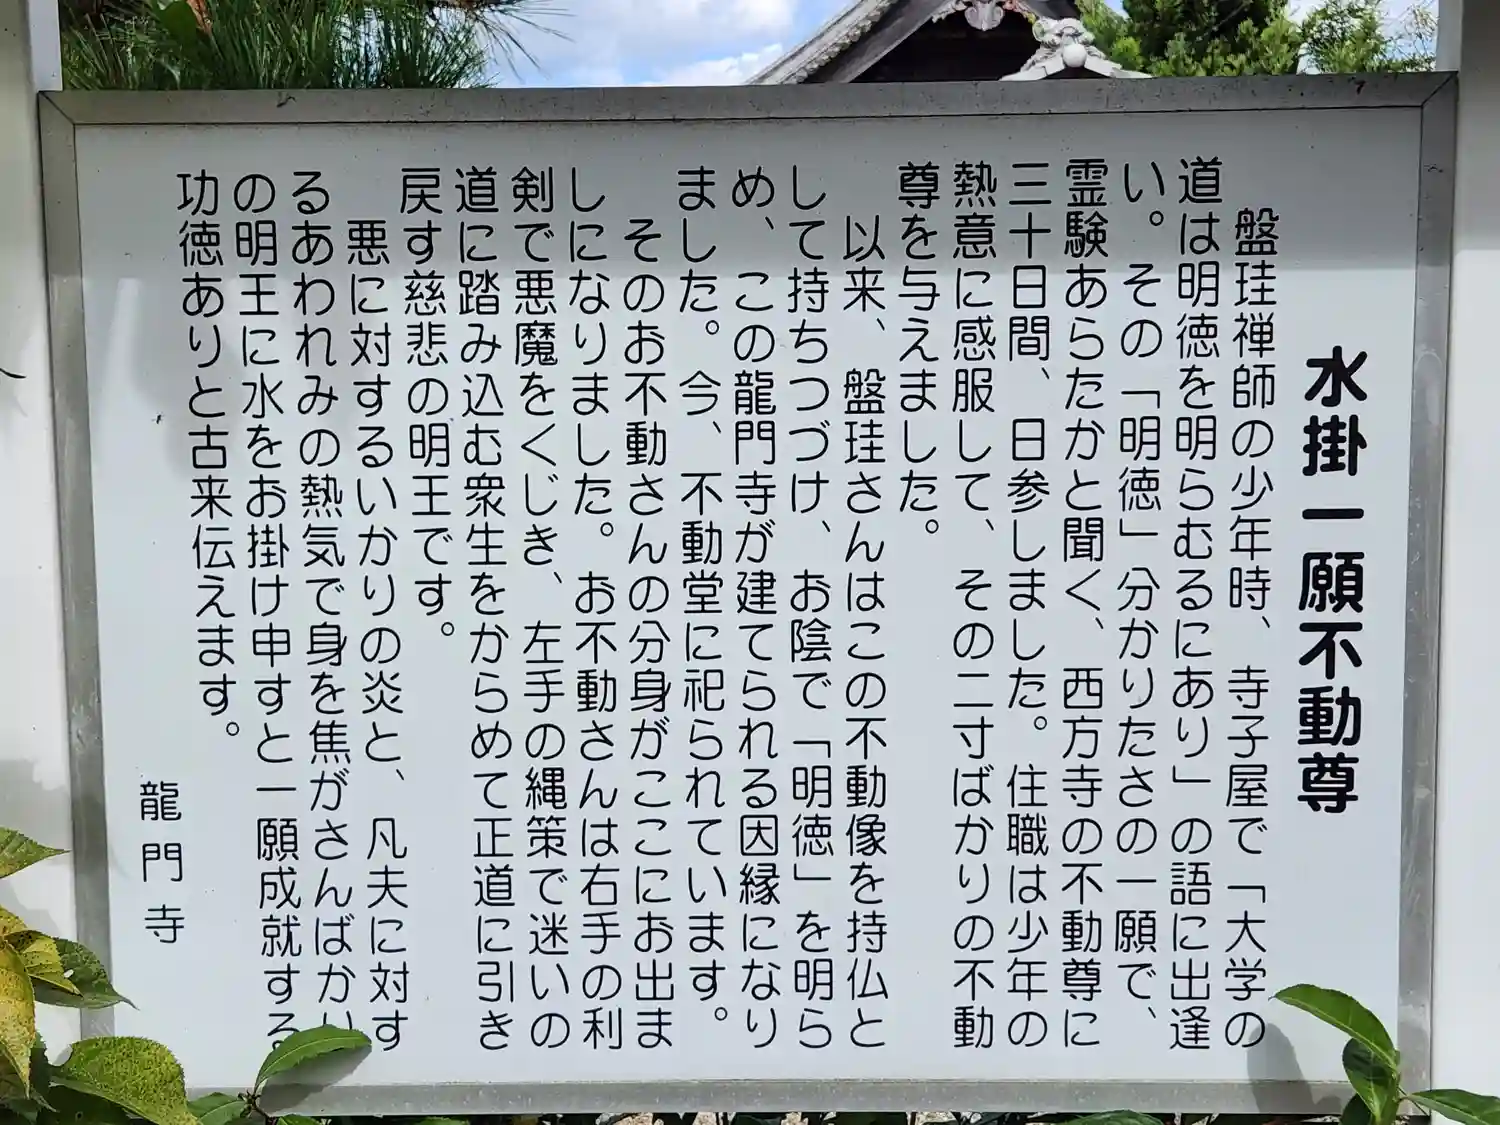 水掛一願不動尊
盤珪禅師の少年時、寺子屋で「大学の
道は明徳を明らむるにあり」の語に出逢
い。その「明徳」分かりたさの一願で、
霊験あらたかと聞く、西方寺の不動尊に
三十日間、日参しました。住職は少年の
熱意に感服して、その二寸ばかりの不動
尊を与えました。
以来、盤珪さんはこの不動像を持仏と
して持ちつづけ、お陰で「明徳」を明ら
め、この龍門寺が建てられる因縁になり
ました。今、不動堂に祀られています。
そのお不動さんの分身がここにお出ま
しになりました。お不動さんは右手の利
剣で悪魔をくじき、左手の縄策で迷いの
道に踏み込む衆生をからめて正道に引き
戻す慈悲の明王です。
悪に対するいかりの炎と、凡夫に対す
るあわれみの熱気で身を焦がさんばかり
の明王に水をお掛け申すと一願成就する
功徳ありと古来伝えます。
龍門寺